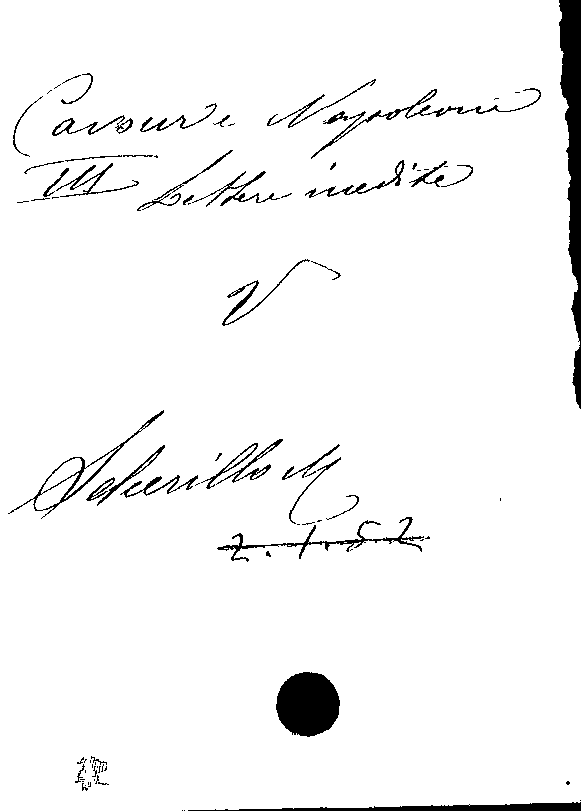 Cavour e Napoleone
III Lettere inedite
V
Scherillo M
2.1.52